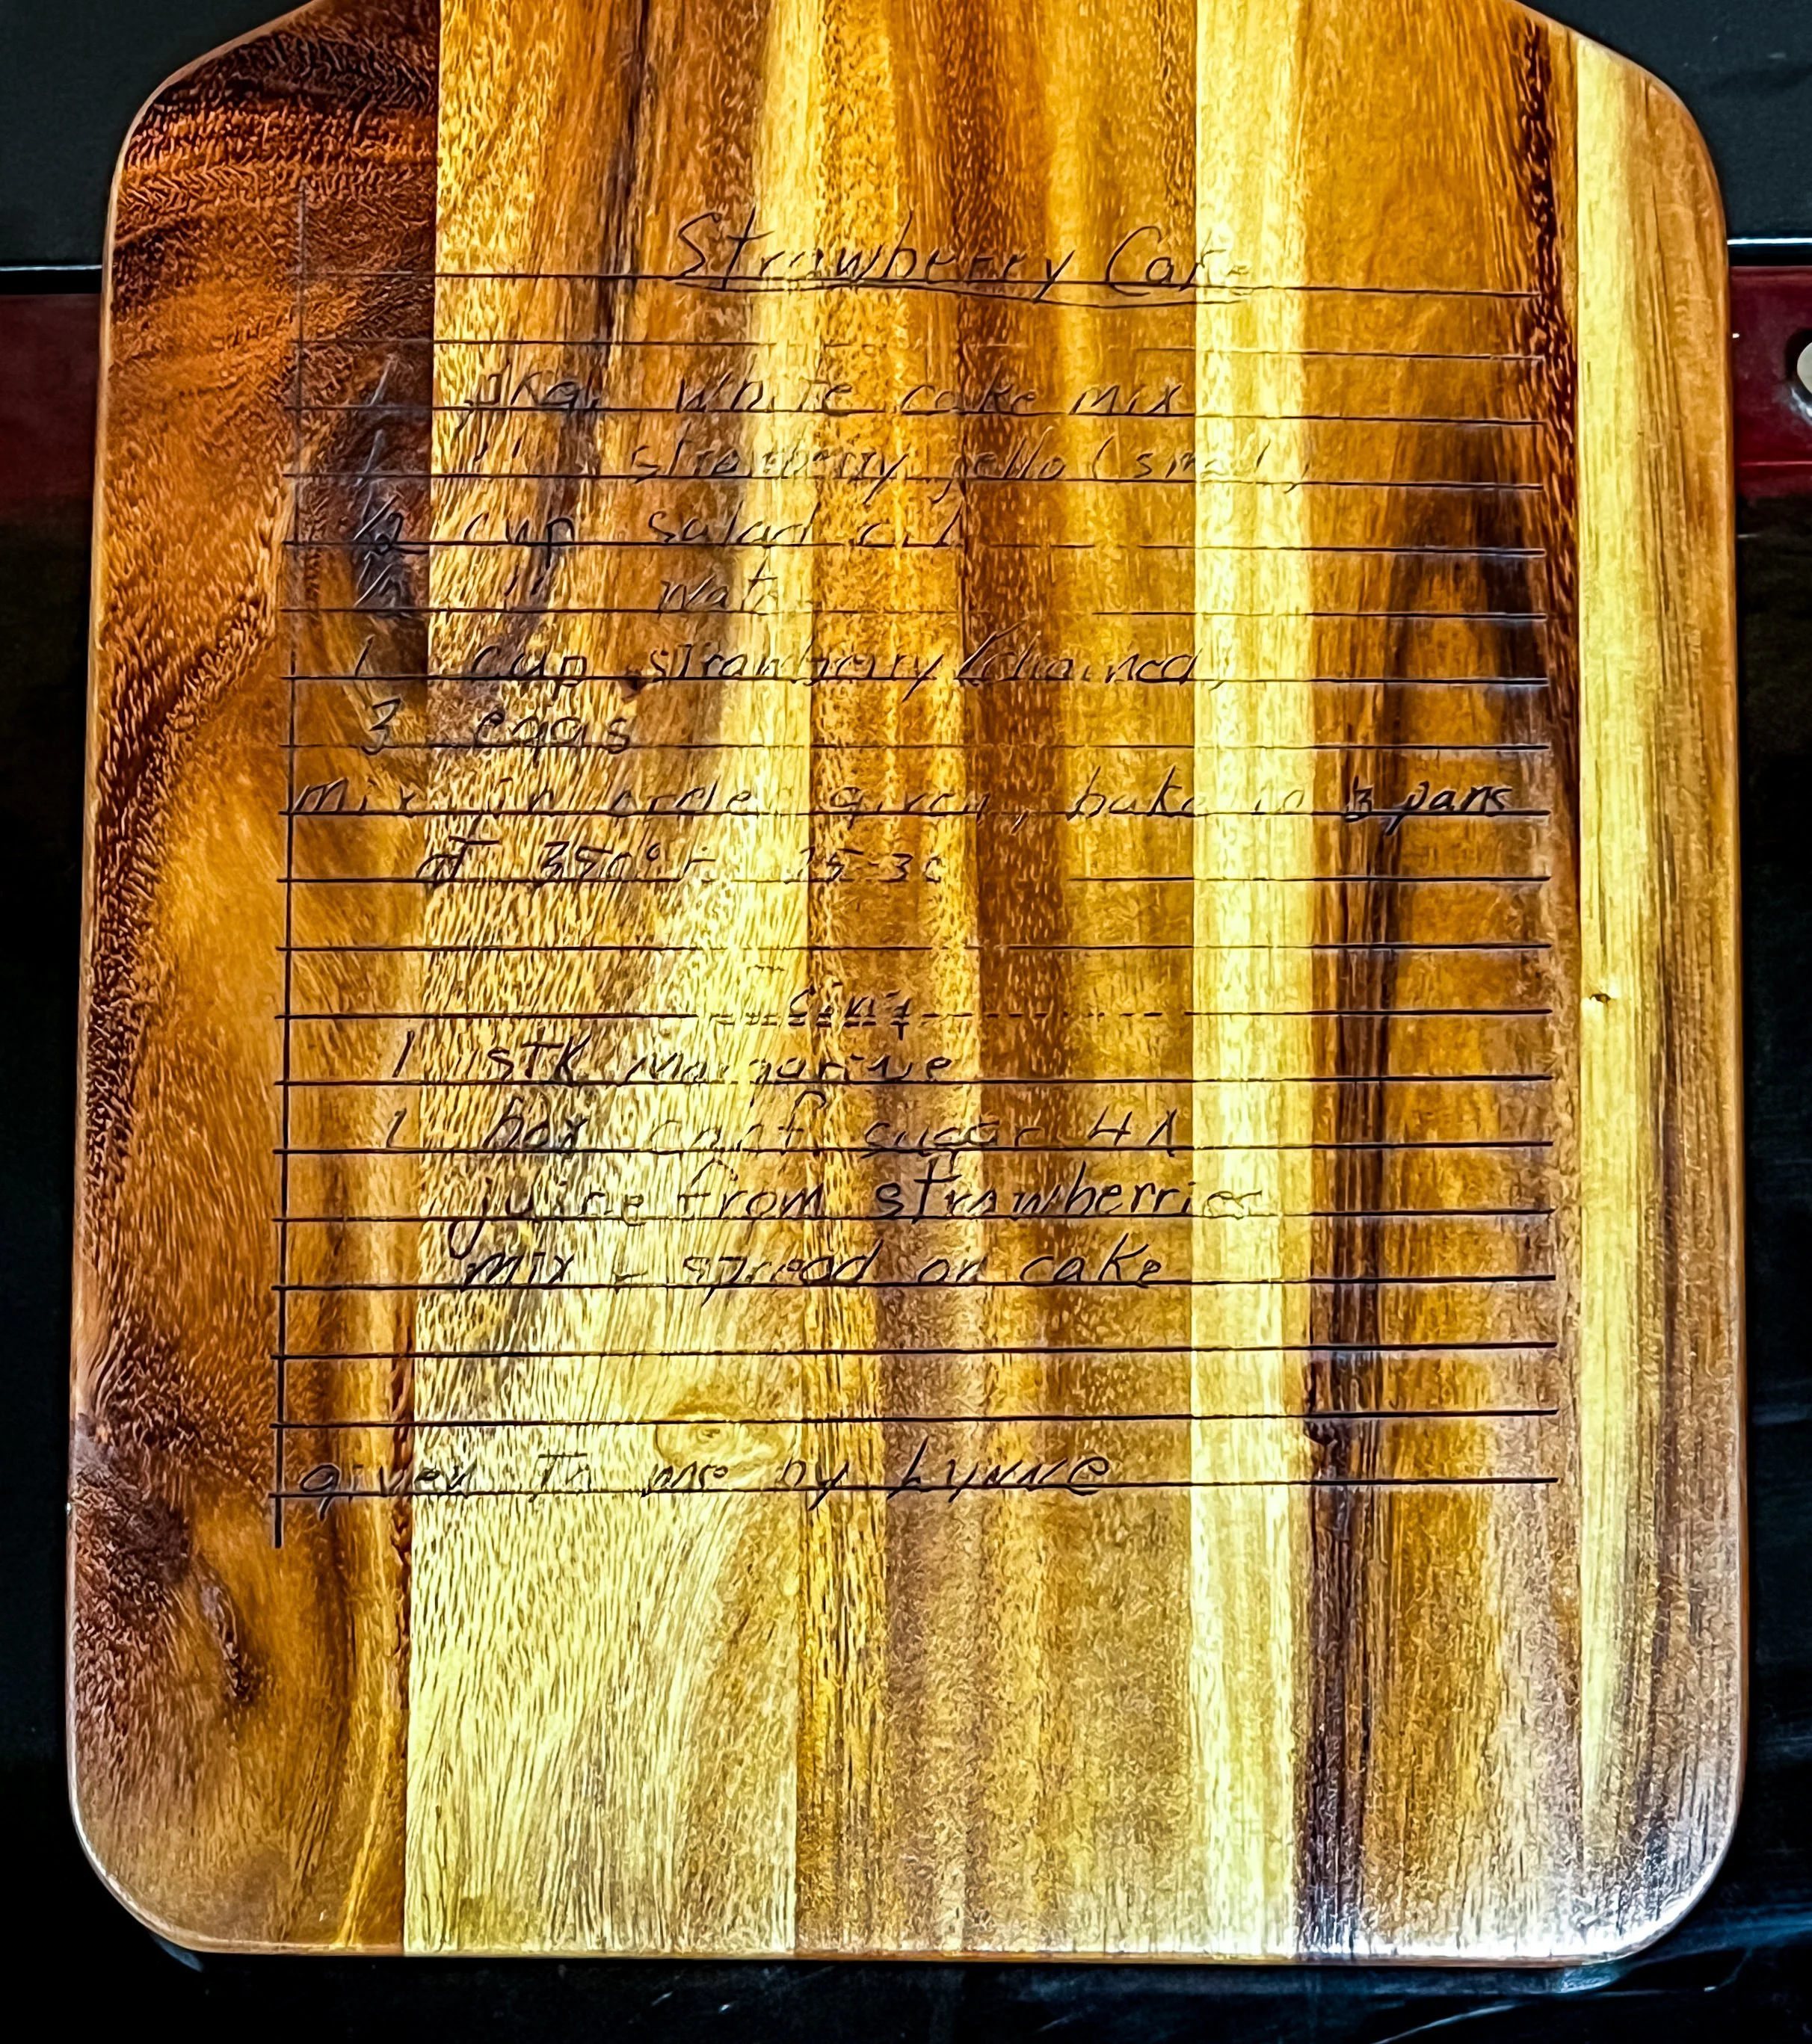 Strawberry Cake
1 pkg. white cake mix
1 " strawberry jello (small)
1/2 cup salad oil
1/2 " water
1 cup strawberry (drained)
3 eggs
mix in order given, bake in 3 pans
at 350° F. 25-30
icing
1 STK margarine
1 box conf. sugar 4X
juice from strawberries
mix - spread on cake
given To me by Lynne